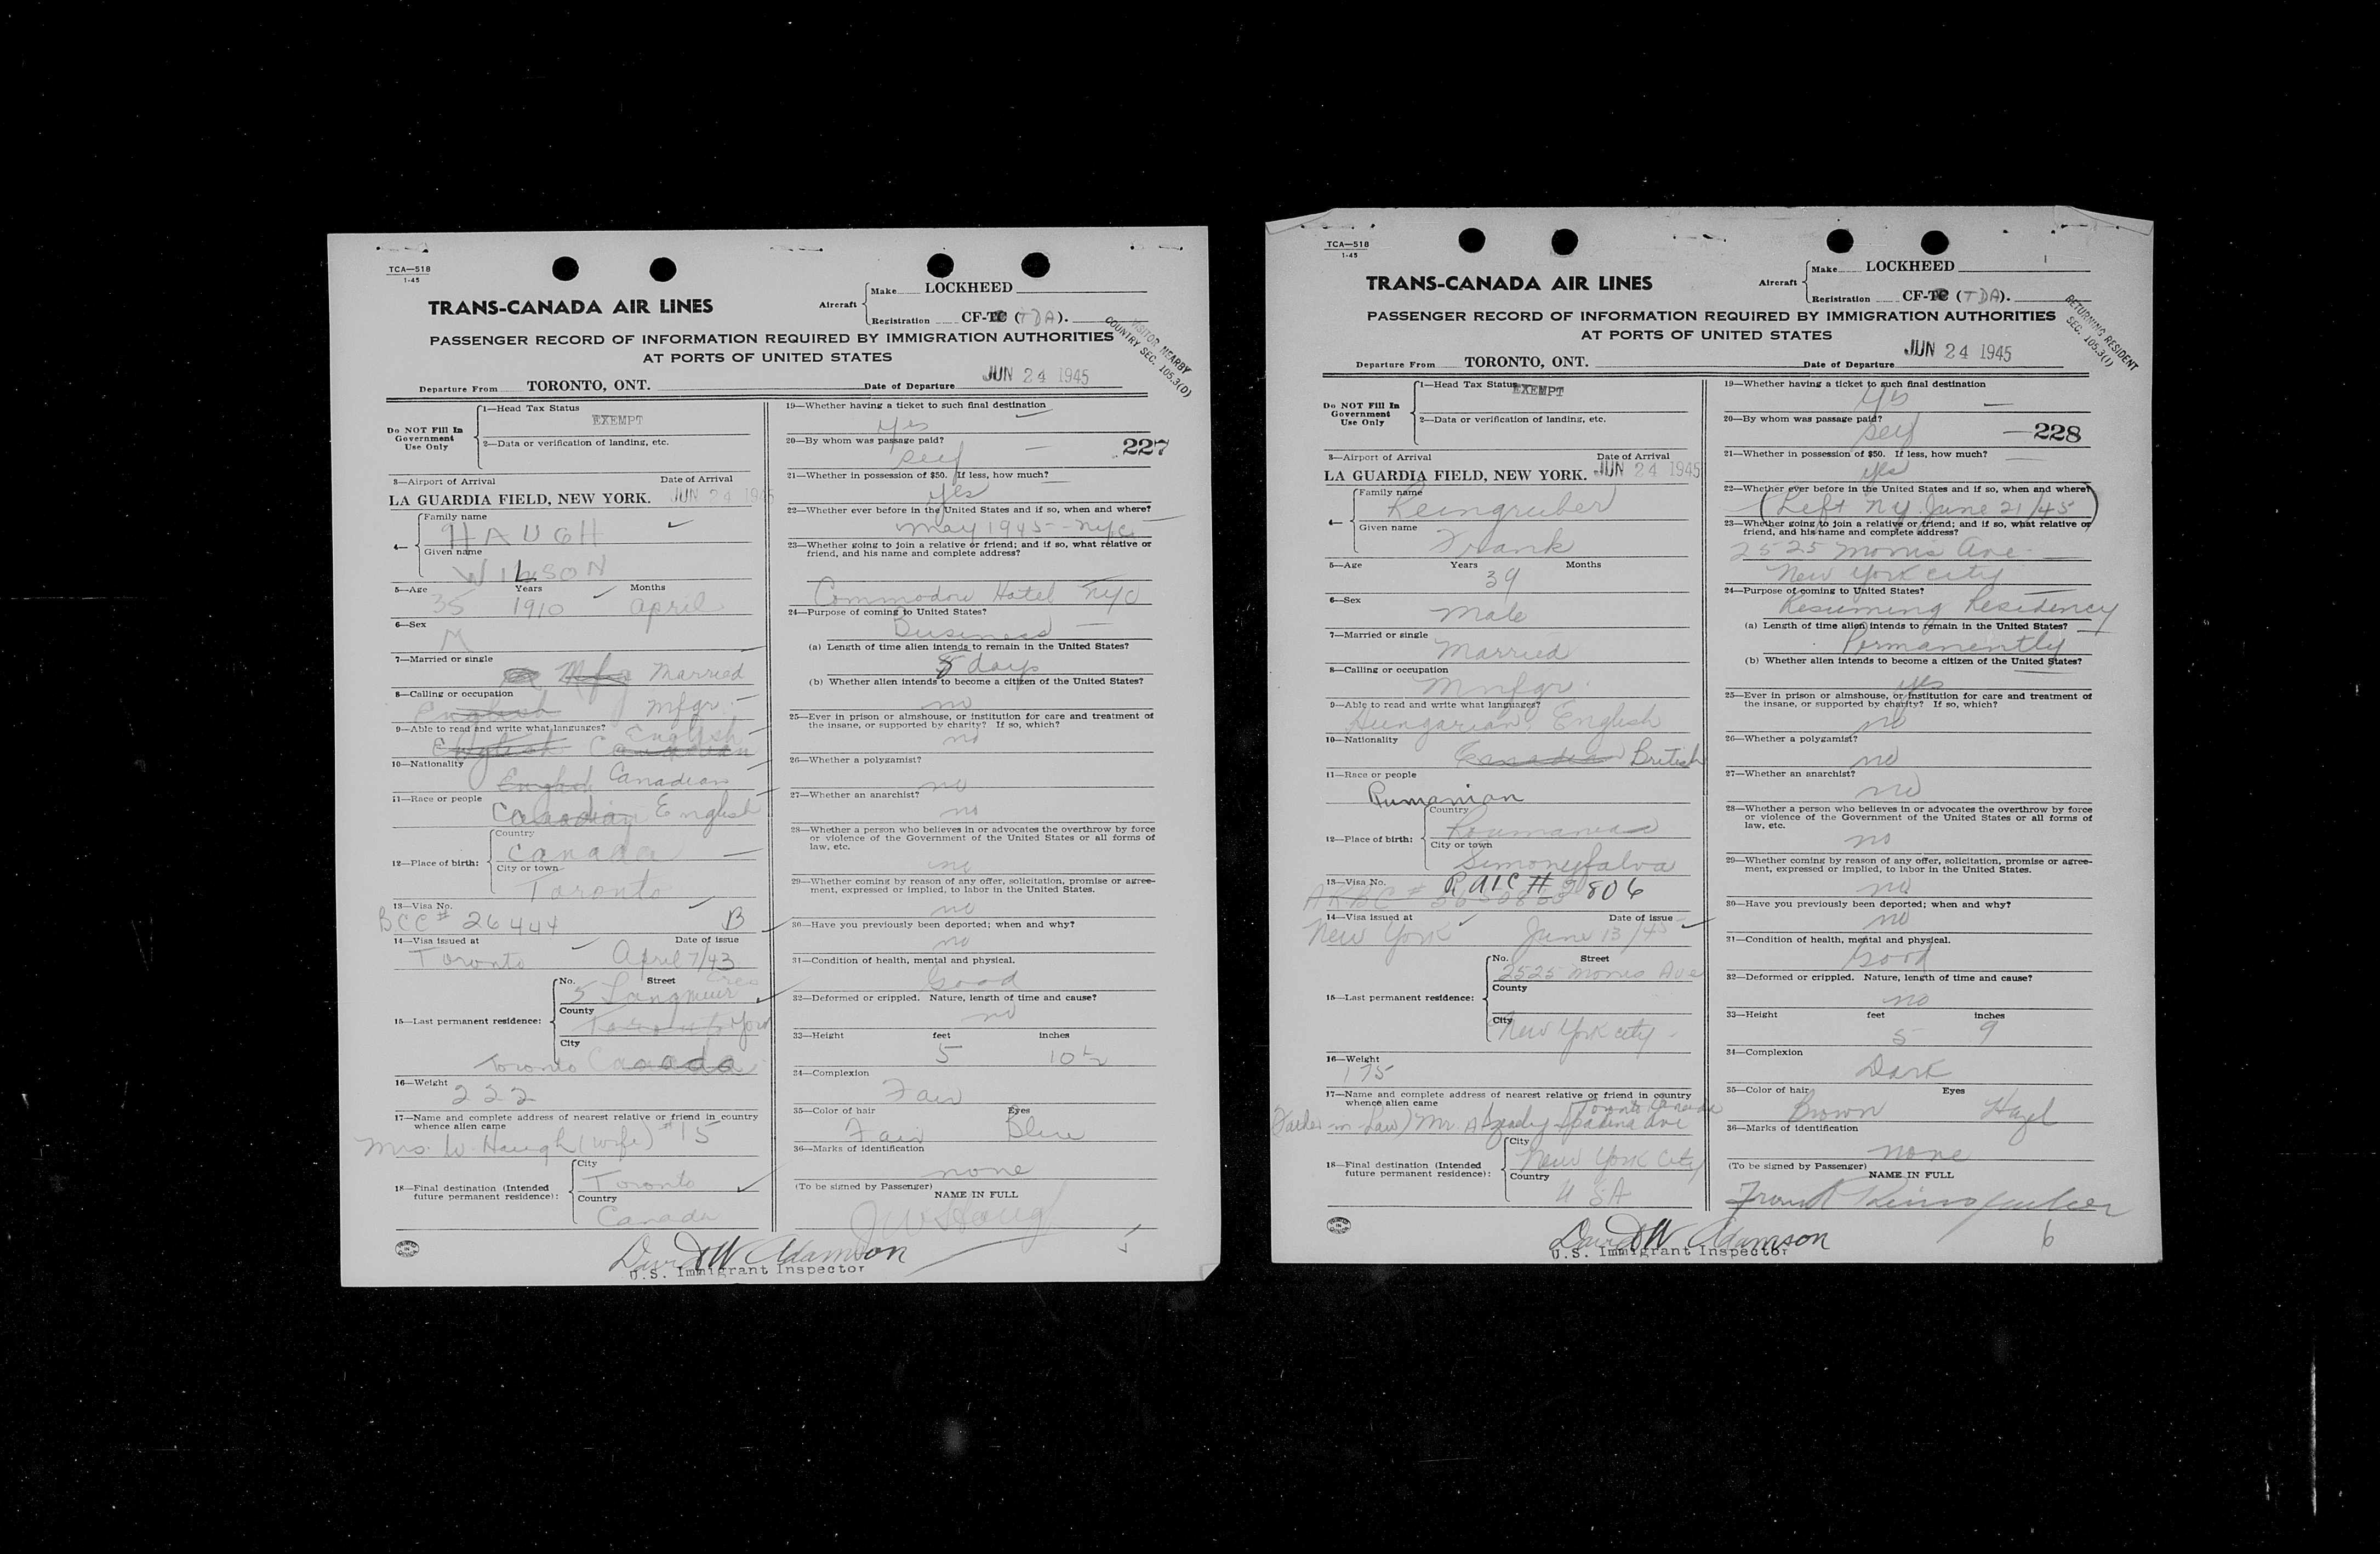 TCA—518
1-45
TRANS-CANADA AIR LINES
Aircraft
Make LOCKHEED
Registration CF-TC (TDA).
VISITOR NEARBY
COUNTRY SEC. 105.3(D)
PASSENGER RECORD OF INFORMATION REQUIRED BY IMMIGRATION AUTHORITIES
AT PORTS OF UNITED STATES
Departure From TORONTO, ONT. Date of Departure JUN 24 1945
Do NOT Fill In
Government
Use Only
1—Head Tax Status
EXEMPT
2—Data or verification of landing, etc.
3—Airport of Arrival Date of Arrival
LA GUARDIA FIELD, NEW YORK. JUN 24 1945
4—
Family name
HAUGH
Given name
WILSON
5—Age Years Months
35 1910 April
6—Sex
M
7—Married or single
Mfg Married
8—Calling or occupation
English mfgr.
9—Able to read and write what languages? English
English Canadian
10—Nationality
English Canadian
11—Race or people
Canadian English
12—Place of birth:
Country
Canada
City or town
Toronto
13—Visa No.
BCC # 26444 B
14—Visa issued at Date of issue
Toronto April 7/43
15—Last permanent residence:
No. Street
5 Langmuir Cres
County
Toronto York
City
Toronto Canada
16—Weight
222
17—Name and complete address of nearest relative or friend in country
whence alien came
Mrs. W. Haugh (wife) #15
18—Final destination (Intended
future permanent residence):
City
Toronto
Country
Canada
19—Whether having a ticket to such final destination
Yes
20—By whom was passage paid?
Self
227
21—Whether in possession of $50. If less, how much?
Yes
22—Whether ever before in the United States and if so, when and where?
May 1945 - NYC
23—Whether going to join a relative or friend; and if so, what relative or
friend, and his name and complete address?
Commodore Hotel NYC
24—Purpose of coming to United States?
Business
(a) Length of time alien intends to remain in the United States?
8 days
(b) Whether alien intends to become a citizen of the United States?
no
25—Ever in prison or almshouse, or institution for care and treatment of
the insane, or supported by charity? If so, which?
no
26—Whether a polygamist?
no
27—Whether an anarchist?
no
28—Whether a person who believes in or advocates the overthrow by force
or violence of the Government of the United States or all forms of
law, etc.
no
29—Whether coming by reason of any offer, solicitation, promise or agree-
ment, expressed or implied, to labor in the United States.
no
30—Have you previously been deported; when and why?
no
31—Condition of health, mental and physical.
Good
32—Deformed or crippled. Nature, length of time and cause?
no
33—Height feet inches
5 10½
34—Complexion
Fair
35—Color of hair Eyes
Fair Blue
36—Marks of identification
none
(To be signed by Passenger)
NAME IN FULL
JW Haugh
David W Adamson
U.S. Immigrant Inspector
TCA—518
1-45
TRANS-CANADA AIR LINES
Aircraft
Make LOCKHEED
Registration CF-TC (TDA).
RETURNING RESIDENT
SEC. 105.3(1)
PASSENGER RECORD OF INFORMATION REQUIRED BY IMMIGRATION AUTHORITIES
AT PORTS OF UNITED STATES
Departure From TORONTO, ONT. Date of Departure JUN 24 1945
Do NOT Fill In
Government
Use Only
1—Head Tax Status EXEMPT
2—Data or verification of landing, etc.
3—Airport of Arrival Date of Arrival
LA GUARDIA FIELD, NEW YORK. JUN 24 1945
4—
Family name
Reingruber
Given name
Frank
5—Age Years Months
39
6—Sex
Male
7—Married or single
Married
8—Calling or occupation
Mnfgr.
9—Able to read and write what languages?
Hungarian, English
10—Nationality
Canadian British
11—Race or people
Rumanian
12—Place of birth:
Country
Roumania
City or town
Simonyfalva
13—Visa No.
14—Visa issued at Date of issue
New York June 13/45
15—Last permanent residence:
No. Street
2525 Morris Ave
County
City
New York City
16—Weight
175
17—Name and complete address of nearest relative or friend in country
whence alien came Toronto Canada
Father-in-Law) Mr. A Spadina Ave
18—Final destination (Intended
future permanent residence):
City
New York City
Country
USA
19—Whether having a ticket to such final destination
Yes
20—By whom was passage paid?
Self
228
21—Whether in possession of $50. If less, how much?
Yes
22—Whether ever before in the United States and if so, when and where?
(Left NY June 21/45)
23—Whether going to join a relative or friend; and if so, what relative or
friend, and his name and complete address?
2525 Morris Ave
New York City
24—Purpose of coming to United States?
Resuming Residency
(a) Length of time alien intends to remain in the United States?
Permanently
(b) Whether alien intends to become a citizen of the United States?
yes
25—Ever in prison or almshouse, or institution for care and treatment of
the insane, or supported by charity? If so, which?
no
26—Whether a polygamist?
no
27—Whether an anarchist?
no
28—Whether a person who believes in or advocates the overthrow by force
or violence of the Government of the United States or all forms of
law, etc.
no
29—Whether coming by reason of any offer, solicitation, promise or agree-
ment, expressed or implied, to labor in the United States.
no
30—Have you previously been deported; when and why?
no
31—Condition of health, mental and physical.
Good
32—Deformed or crippled. Nature, length of time and cause?
no
33—Height feet inches
5 9
34—Complexion
Dark
35—Color of hair Eyes
Brown Hazel
36—Marks of identification
none
(To be signed by Passenger)
NAME IN FULL
Frank Reingruber
David W Adamson
U.S. Immigrant Inspector
6